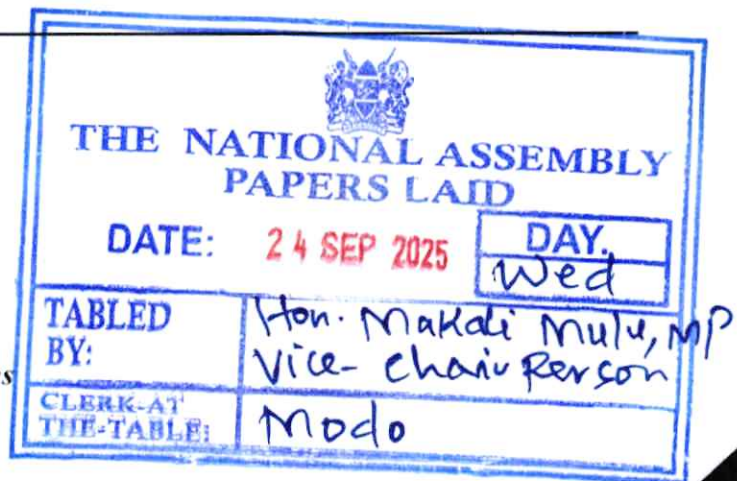 THE NATIONAL ASSEMBLY
PAPERS LAID
DATE: 24 SEP 2025
DAY.
Wed
TABLED BY:
Hon. Makali Mulu, MP
Vice-Chairperson
CLERK-AT THE-TABLE:
Modo